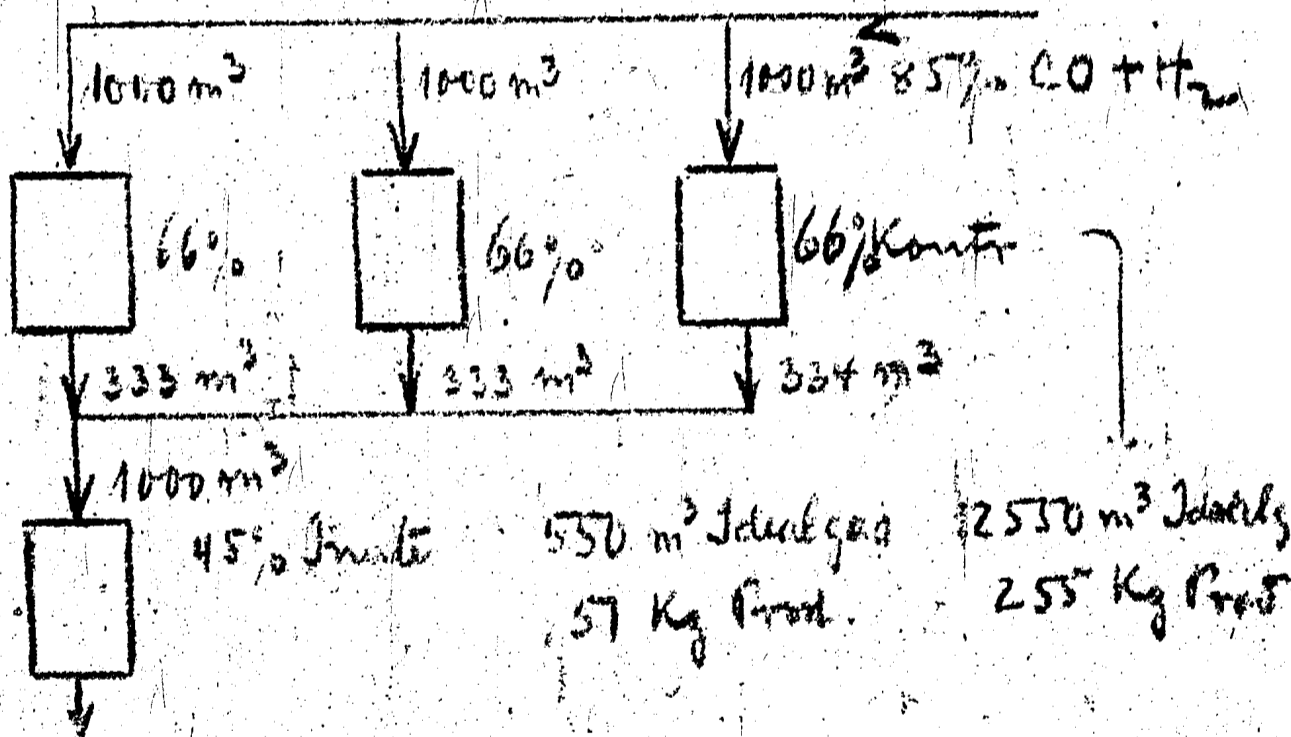 1000 m³ 1000 m³ 1000 m³ 85% CO + H₂
66% 66% 66% Kontr
333 m³ 333 m³ 334 m³
1000 m³
45% Inerte 550 m³ Idealgas 2550 m³ Idealg
57 Kg Prod. 255 Kg Prod